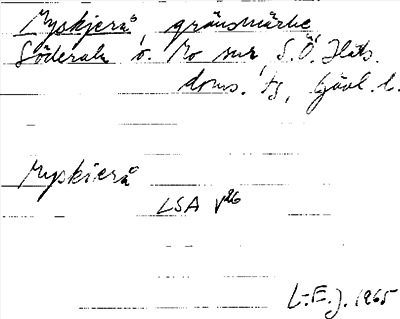 Myskjerå, gränsmärke
Söderala o. Mo snr, S.Ö. Häls.
doms. tg, Gävl. l.
Myskierå
LSA V26
L-E. J. 1965